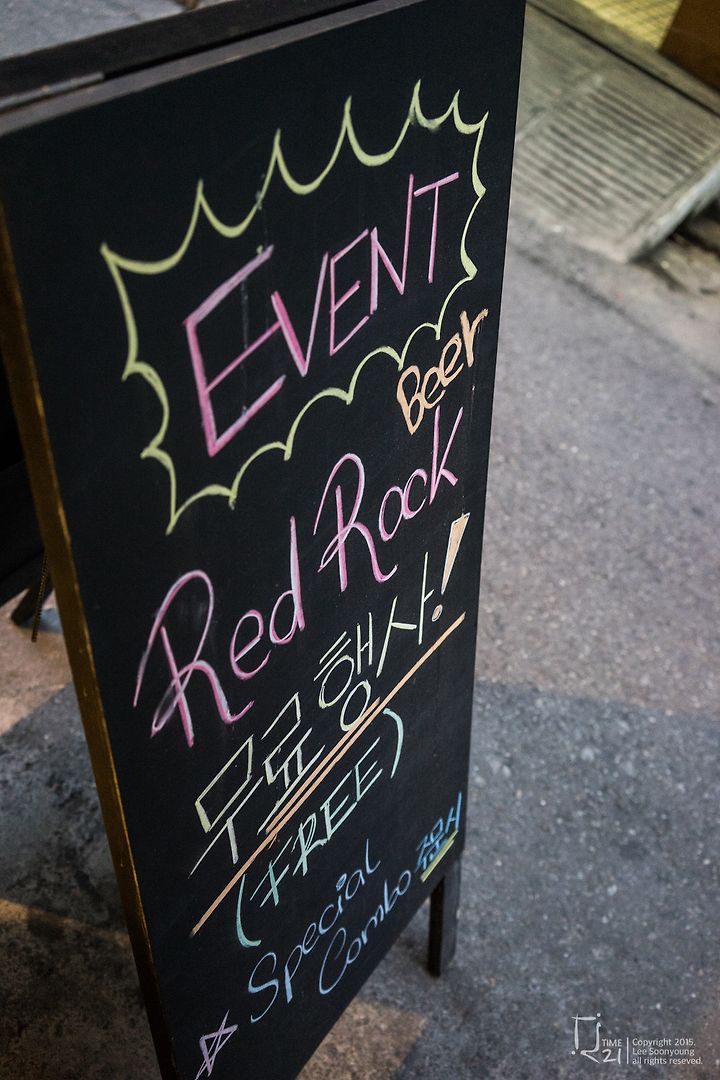 EVENT
Beer
Red Rock
무료 행사!
(FREE)
Special
Combo 주문시
TIME
21
Copyright 2015.
Lee Soonyoung
all rights reseved.